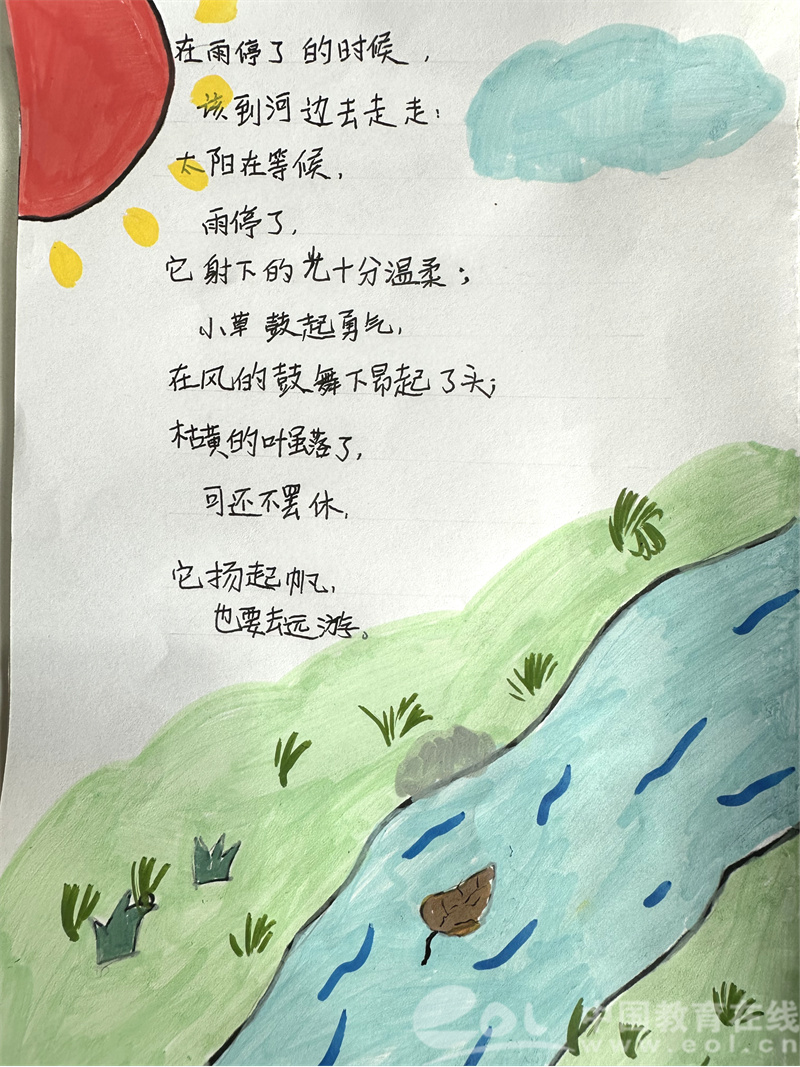 在雨停了的时候，
该到河边去走走：
太阳在等候，
雨停了，
它射下的光十分温柔；
小草鼓起勇气，
在风的鼓舞下昂起了头；
枯黄的叶虽落了，
可还不罢休，
它扬起帆，
也要去远游。
eol 中国教育在线
www.eol.cn